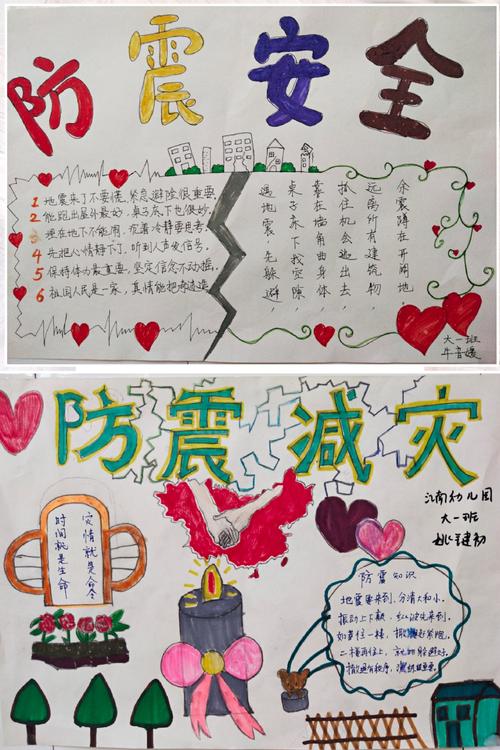 防震安全
1 地震来了不要慌,紧急避险很重要。
2 能跑出屋外最好,桌子底下也很妙。
3 埋在地下不能闹,沉着冷静要思考。
4 先把心情静下了,听到人声发信号。
5 保持体力最重要,坚定信念不动摇。
6 祖国人民是一家,真情能把
遇地震,先躲避,
桌子床下找空隙,
靠在墙角曲身体,
抓住机会逃出去,
远离所有建筑物,
余震蹲在开阔地。
大一班
牛音媛
防震减灾
灾情就是命令
时间就是生命
江南幼儿园
大一班
防震知识
地震要来到,分清大和小。
振动上下颠,红波先来到。
如果住一楼,撤
二楼再往上,就地
撤退有秩序,